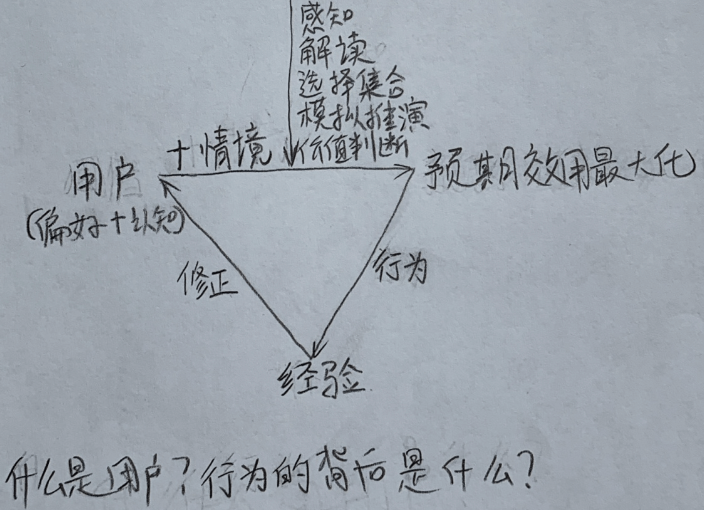 感知
解读
选择集合
模拟推演
价值判断
+情境
用户
(偏好+认知)
预期效用最大化
修正
行为
经验
什么是用户?行为的背后是什么?